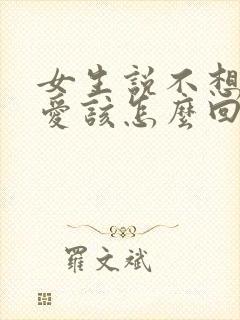 女生說不想
愛該怎麼回
羅文斌